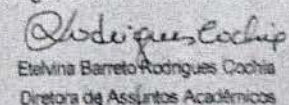 Rodrigues Cochia
Etelvina Barreto Rodrigues Cochia
Diretora de Assuntos Acadêmicos